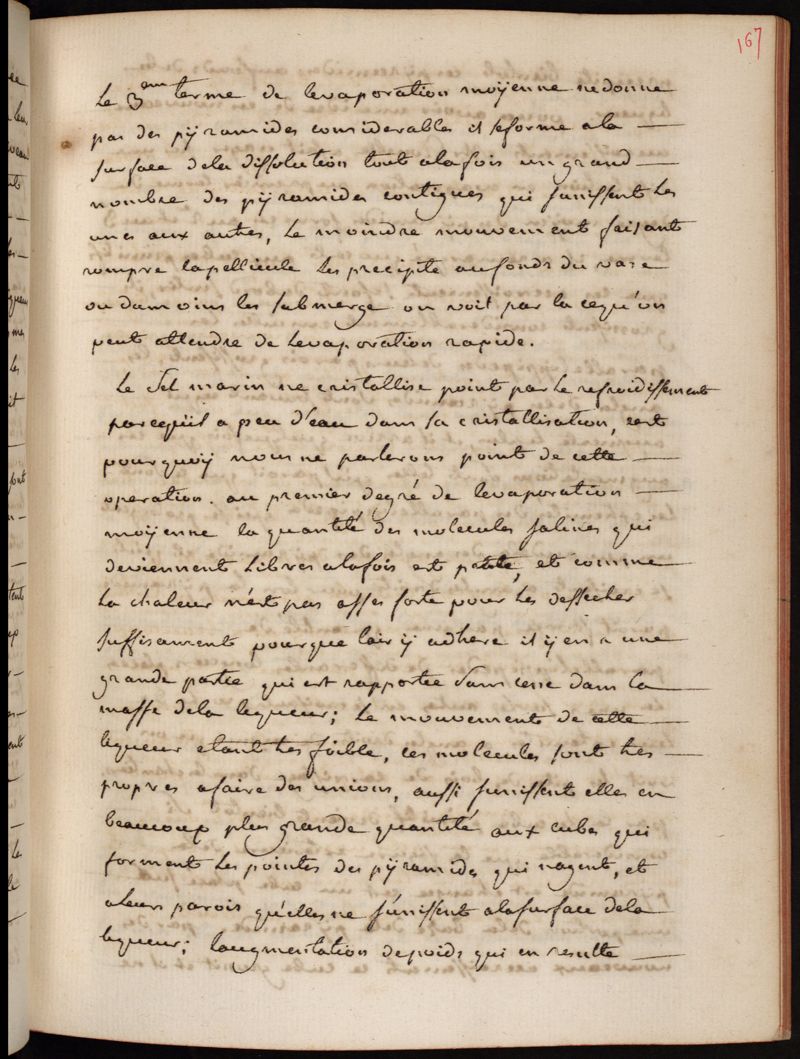 167
Le 3eme terme de levaporation moÿenne ne donne
pas des pÿramides considerables il se forme ala
surface dela dissolution tout alafois un grand
nombre des pÿramides contigues qui sunissent les
unes aux autres, Le moindre mouvement faisant
rompre lapellicule Les precipite aufonds du vase
ou dumoins les submerge on voit par la cequ'on
peut attendre de Levaporation rapide.
Le Sel marin ne cristallise point par Le refroidissement
parcequ'il a peu d'eau dans sa cristallisation, cest
pourquoÿ nous ne parlerons point de cette
operation. au premier degré de levaporation
moÿenne la quantité des molecules salines qui
deviennent Libres alafois est petite, et comme
La chaleur n'est pas asses forte pour Les dessecher
suffisament pourque lair ÿ adhere il ÿ en a une
grande partie qui est rapportée sans cesse dans la
masse dela liqueur; Le mouvement de cette
liqueur etant tres foible, ces molecules sont tres
propres afaire des unions, aussi sunissent elles en
beaucoup plus grande quantité aux cubes qui
forment Les pointes des pÿramides qui nagent, et
aleurs parois qu'elles ne s'unissent alasurface dela
liqueur; laugmentation depoids qui en resulte